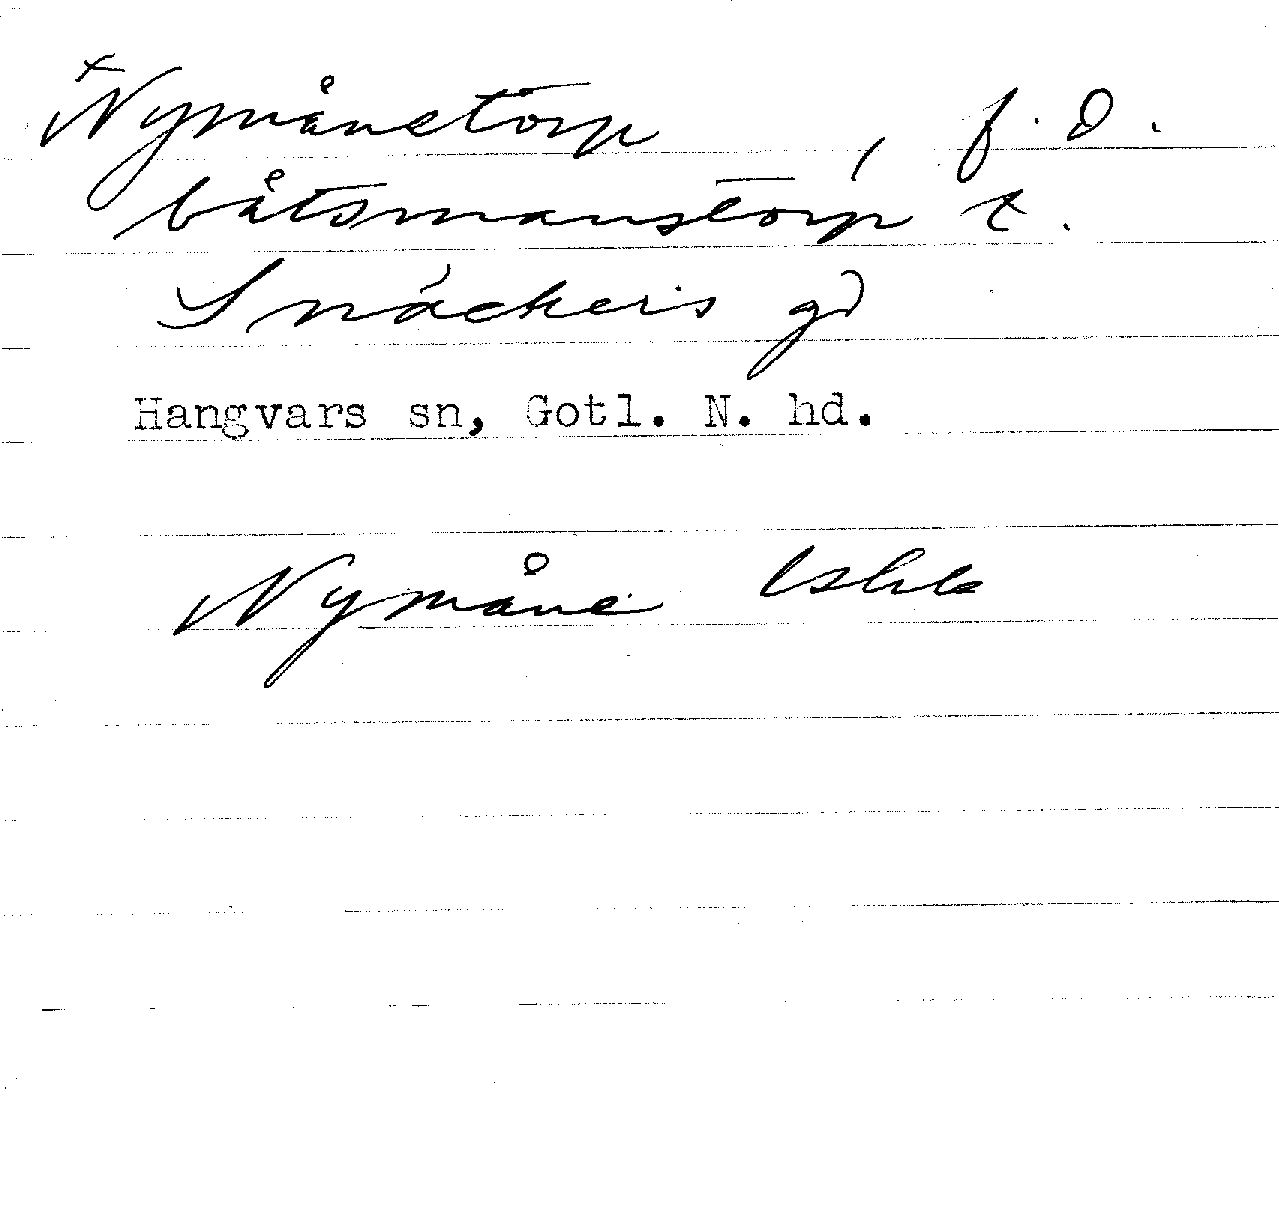 ×Nymånetorp, f. d.
båtsmanstorp t.
Snäckers gd
Hangvars sn, Gotl. N. hd.
Nymåne